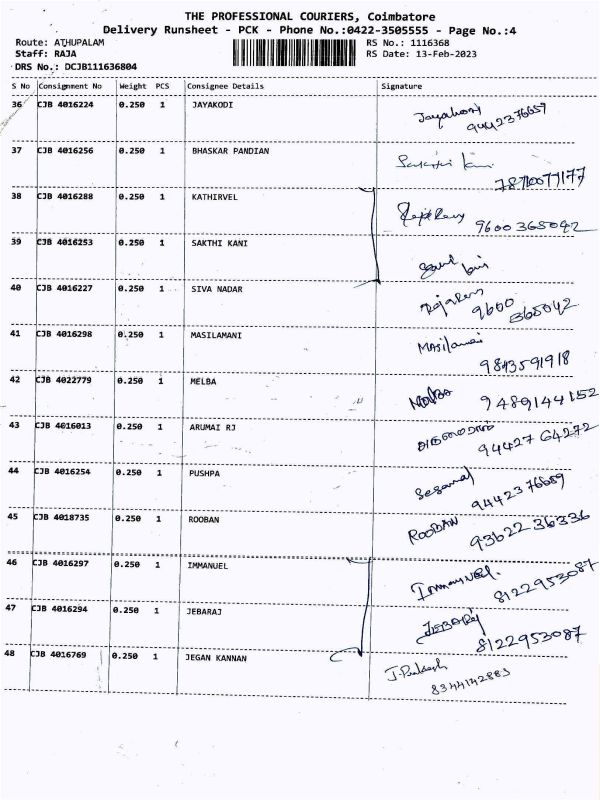 THE PROFESSIONAL COURIERS, Coimbatore
Delivery Runsheet - PCK - Phone No.:0422-3505555 - Page No.:4
Route: ATHUPALAM RS No.: 1116368
Staff: RAJA RS Date: 13-Feb-2023
DRS No.: DCJB111636804
S No Consignment No Weight PCS Consignee Details Signature
36 CJB 4016224 0.250 1 JAYAKODI Jayakodi
9442376659
37 CJB 4016256 0.250 1 BHASKAR PANDIAN Sakthi kani
7871077177
38 CJB 4016288 0.250 1 KATHIRVEL
9600365042
39 CJB 4016253 0.250 1 SAKTHI KANI kani
40 CJB 4016227 0.250 1 SIVA NADAR
9600
365042
41 CJB 4016298 0.250 1 MASILAMANI MAsilamani
9843591918
42 CJB 4022779 0.250 1 MELBA MELBA
9489144152
43 CJB 4016013 0.250 1 ARUMAI RJ
94427 64272
44 CJB 4016254 0.250 1 PUSHPA
9442376659
45 CJB 4018735 0.250 1 ROOBAN ROOBAN
9362236336
46 CJB 4016297 0.250 1 IMMANUEL Immanuel.
8122953087
47 CJB 4016294 0.250 1 JEBARAJ JEBARaj
8122953087
48 CJB 4016769 0.250 1 JEGAN KANNAN J. Prakash
8344142883